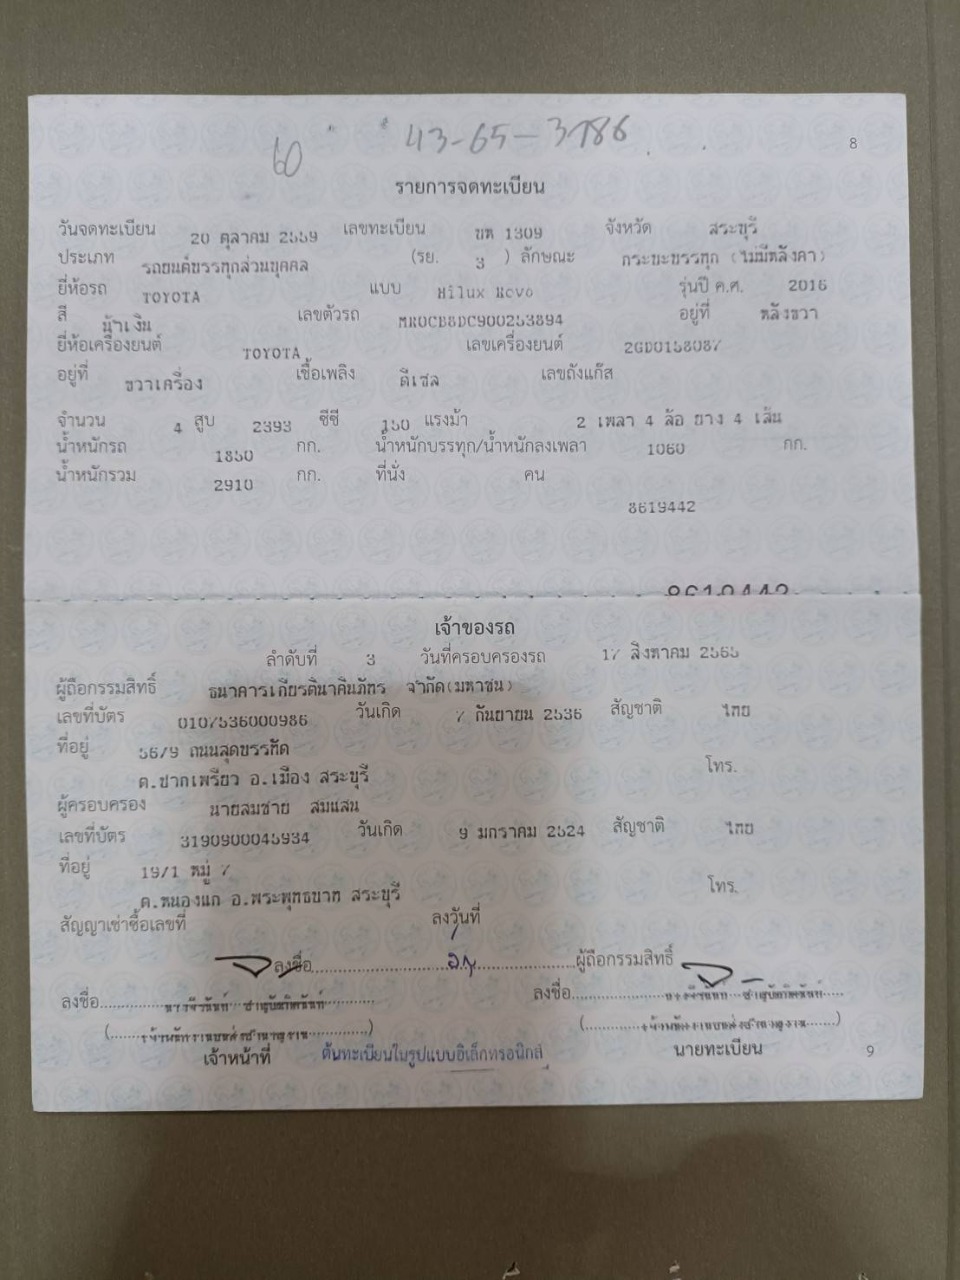 43-65-3786
60
8
รายการจดทะเบียน
วันจดทะเบียน 20 ตุลาคม 2559 เลขทะเบียน บท 1309 จังหวัด สระบุรี
ประเภท รถยนต์บรรทุกส่วนบุคคล (รย. 3 ) ลักษณะ กระบะบรรทุก (ไม่มีหลังคา)
ยี่ห้อรถ TOYOTA แบบ Hilux Revo รุ่นปี ค.ศ. 2016
สี น้ำเงิน เลขตัวรถ MR0CB8DC900253894 อยู่ที่ หลังขวา
ยี่ห้อเครื่องยนต์ TOYOTA เลขเครื่องยนต์ 2GD0158087
อยู่ที่ ขวาเครื่อง เชื้อเพลิง ดีเซล เลขถังแก๊ส
จำนวน 4 สูบ 2393 ซีซี 150 แรงม้า 2 เพลา 4 ล้อ ยาง 4 เส้น
น้ำหนักรถ 1850 กก. น้ำหนักบรรทุก/น้ำหนักลงเพลา 1060 กก.
น้ำหนักรวม 2910 กก. ที่นั่ง คน
8619442
8619442
เจ้าของรถ
ลำดับที่ 3 วันที่ครอบครองรถ 17 สิงหาคม 2565
ผู้ถือกรรมสิทธิ์ ธนาคารเกียรตินาคินภัทร จำกัด(มหาชน)
เลขที่บัตร 0107536000986 วันเกิด 7 กันยายน 2536 สัญชาติ ไทย
ที่อยู่ 56/9 ถนนสุดบรรทัด
ต.ปากเพรียว อ.เมือง สระบุรี โทร.
ผู้ครอบครอง นายสมชาย สมแสน
เลขที่บัตร 3190900045934 วันเกิด 9 มกราคม 2524 สัญชาติ ไทย
ที่อยู่ 19/1 หมู่ 7
ต.หนองแก อ.พระพุทธบาท สระบุรี โทร.
สัญญาเช่าซื้อเลขที่ ลงวันที่
ลงชื่อ ผู้ถือกรรมสิทธิ์
ลงชื่อ ลงชื่อ
เจ้าหน้าที่ ต้นทะเบียนในรูปแบบอิเล็กทรอนิกส์ นายทะเบียน
9